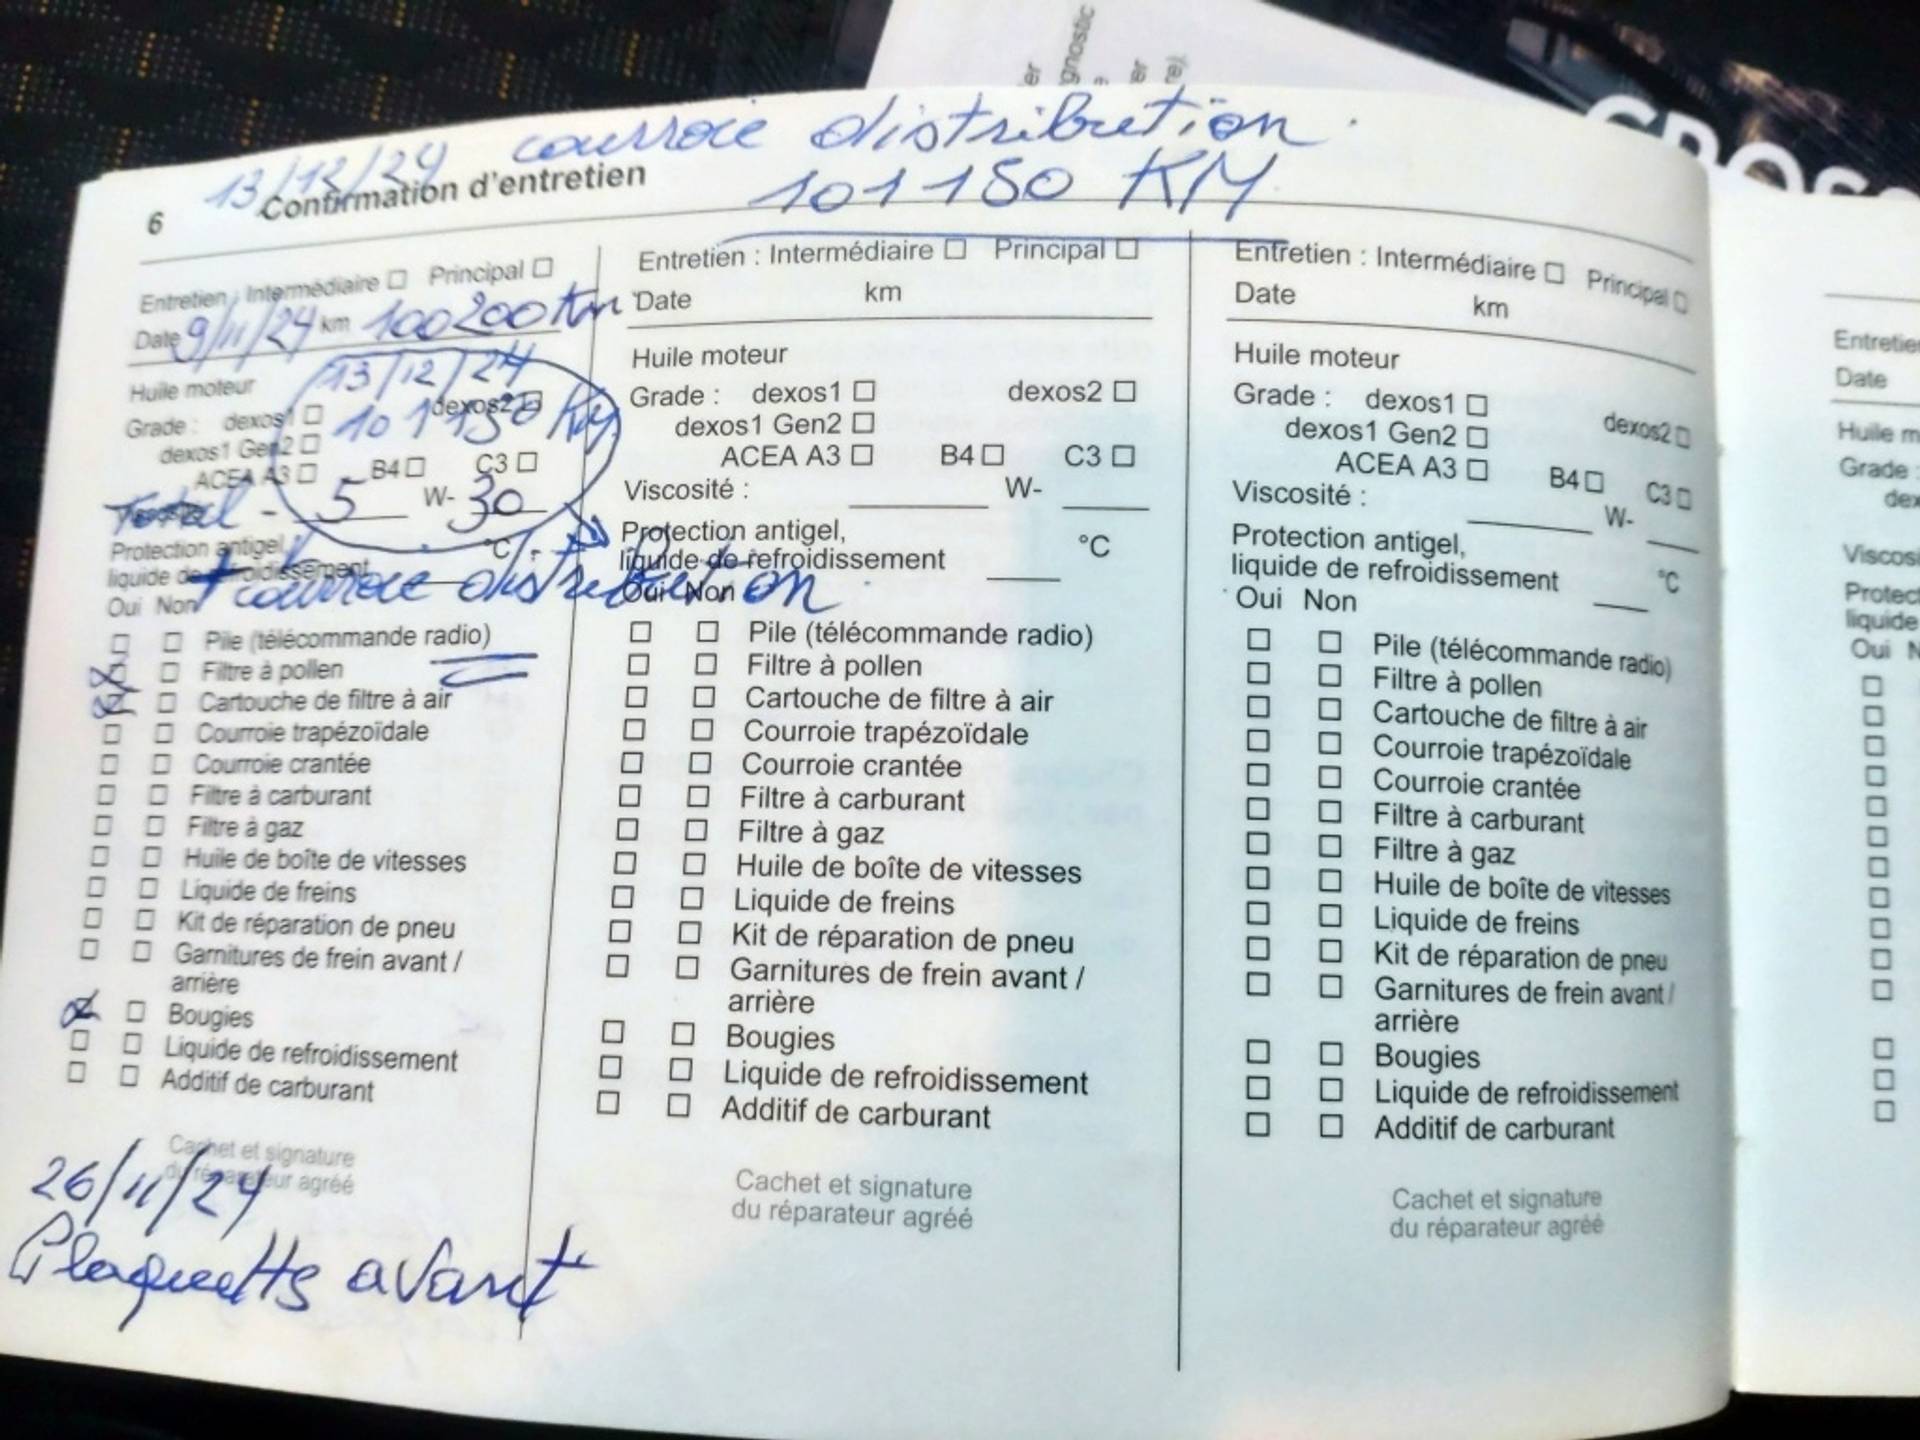 er
gnostic
er
re).
CROS
13/12/24 courroie distribution.
101150 KM
6 Confirmation d'entretien
Entretien : Intermédiaire ☐ Principal ☐
Date 9/11/24 km 100200 Km
13/12/24
Huile moteur
101150 Km
Grade : dexos1 ☐ dexos2 ☐
dexos1 Gen2 ☐
ACEA A3 ☐ B4 ☐ C3 ☐
Total - 5 W- 30
Protection antigel,
liquide de refroidissement °C
+ courroie distribution
Oui Non
☐ ☐ Pile (télécommande radio)
☒ ☐ Filtre à pollen
☒ ☐ Cartouche de filtre à air
☐ ☐ Courroie trapézoïdale
☐ ☐ Courroie crantée
☐ ☐ Filtre à carburant
☐ ☐ Filtre à gaz
☐ ☐ Huile de boîte de vitesses
☐ ☐ Liquide de freins
☐ ☐ Kit de réparation de pneu
☐ ☐ Garnitures de frein avant /
arrière
☒ ☐ Bougies
☐ ☐ Liquide de refroidissement
☐ ☐ Additif de carburant
Cachet et signature
du réparateur agréé
26/11/24
Plaquetts avant
Entretien : Intermédiaire ☐ Principal ☐
Date km
Huile moteur
Grade : dexos1 ☐ dexos2 ☐
dexos1 Gen2 ☐
ACEA A3 ☐ B4 ☐ C3 ☐
Viscosité : W-
Protection antigel,
liquide de refroidissement °C
Oui Non
☐ ☐ Pile (télécommande radio)
☐ ☐ Filtre à pollen
☐ ☐ Cartouche de filtre à air
☐ ☐ Courroie trapézoïdale
☐ ☐ Courroie crantée
☐ ☐ Filtre à carburant
☐ ☐ Filtre à gaz
☐ ☐ Huile de boîte de vitesses
☐ ☐ Liquide de freins
☐ ☐ Kit de réparation de pneu
☐ ☐ Garnitures de frein avant /
arrière
☐ ☐ Bougies
☐ ☐ Liquide de refroidissement
☐ ☐ Additif de carburant
Cachet et signature
du réparateur agréé
Entretien : Intermédiaire ☐ Principal ☐
Date km
Huile moteur
Grade : dexos1 ☐ dexos2 ☐
dexos1 Gen2 ☐
ACEA A3 ☐ B4 ☐ C3 ☐
Viscosité : W-
Protection antigel,
liquide de refroidissement °C
Oui Non
☐ ☐ Pile (télécommande radio)
☐ ☐ Filtre à pollen
☐ ☐ Cartouche de filtre à air
☐ ☐ Courroie trapézoïdale
☐ ☐ Courroie crantée
☐ ☐ Filtre à carburant
☐ ☐ Filtre à gaz
☐ ☐ Huile de boîte de vitesses
☐ ☐ Liquide de freins
☐ ☐ Kit de réparation de pneu
☐ ☐ Garnitures de frein avant /
arrière
☐ ☐ Bougies
☐ ☐ Liquide de refroidissement
☐ ☐ Additif de carburant
Cachet et signature
du réparateur agréé
Entretie
Date
Huile m
Grade :
dex
Viscosi
Protect
liquide
Oui N